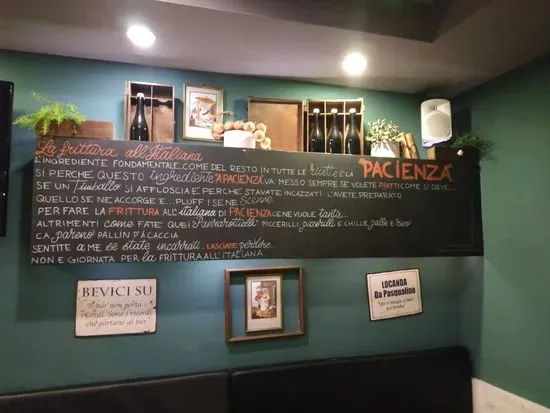 La frittura all'Italiana
L'INGREDIENTE FONDAMENTALE, COME DEL RESTO IN TUTTE LE ricette È LA "PACIENZA"
SI PERCHÉ QUESTO ingrediente "A PACIENZA" VA MESSO SEMPRE SE VOLETE PIATTI COME SI DEVE...
SE UN Timballo SI AFFLOSCIA È PERCHÉ STAVATE INCAZZATI L'AVETE PREPARATO
QUELLO SE NE ACCORGE E... PLUFF! SE NE Scenne
PER FARE LA FRITTURA ALL'italiana DI PACIENZA CE NE VUOLE tanta...
ALTRIMENTI COME FATE QUEI PICCERILLI, piccerilli E CHILLE, palle e riso
CA, pareno PALLIN D'ACACCIA
SENTITE A ME SE state incarrati. LASCIATE perdere.
NON E GIORNATA PER LA FRITTURA ALL'ITALIANA.
BEVICI SU
Il bar non porta i
ricordi. Sono i ricordi
che portano al bar
LOCANDA
Da Pasqualino